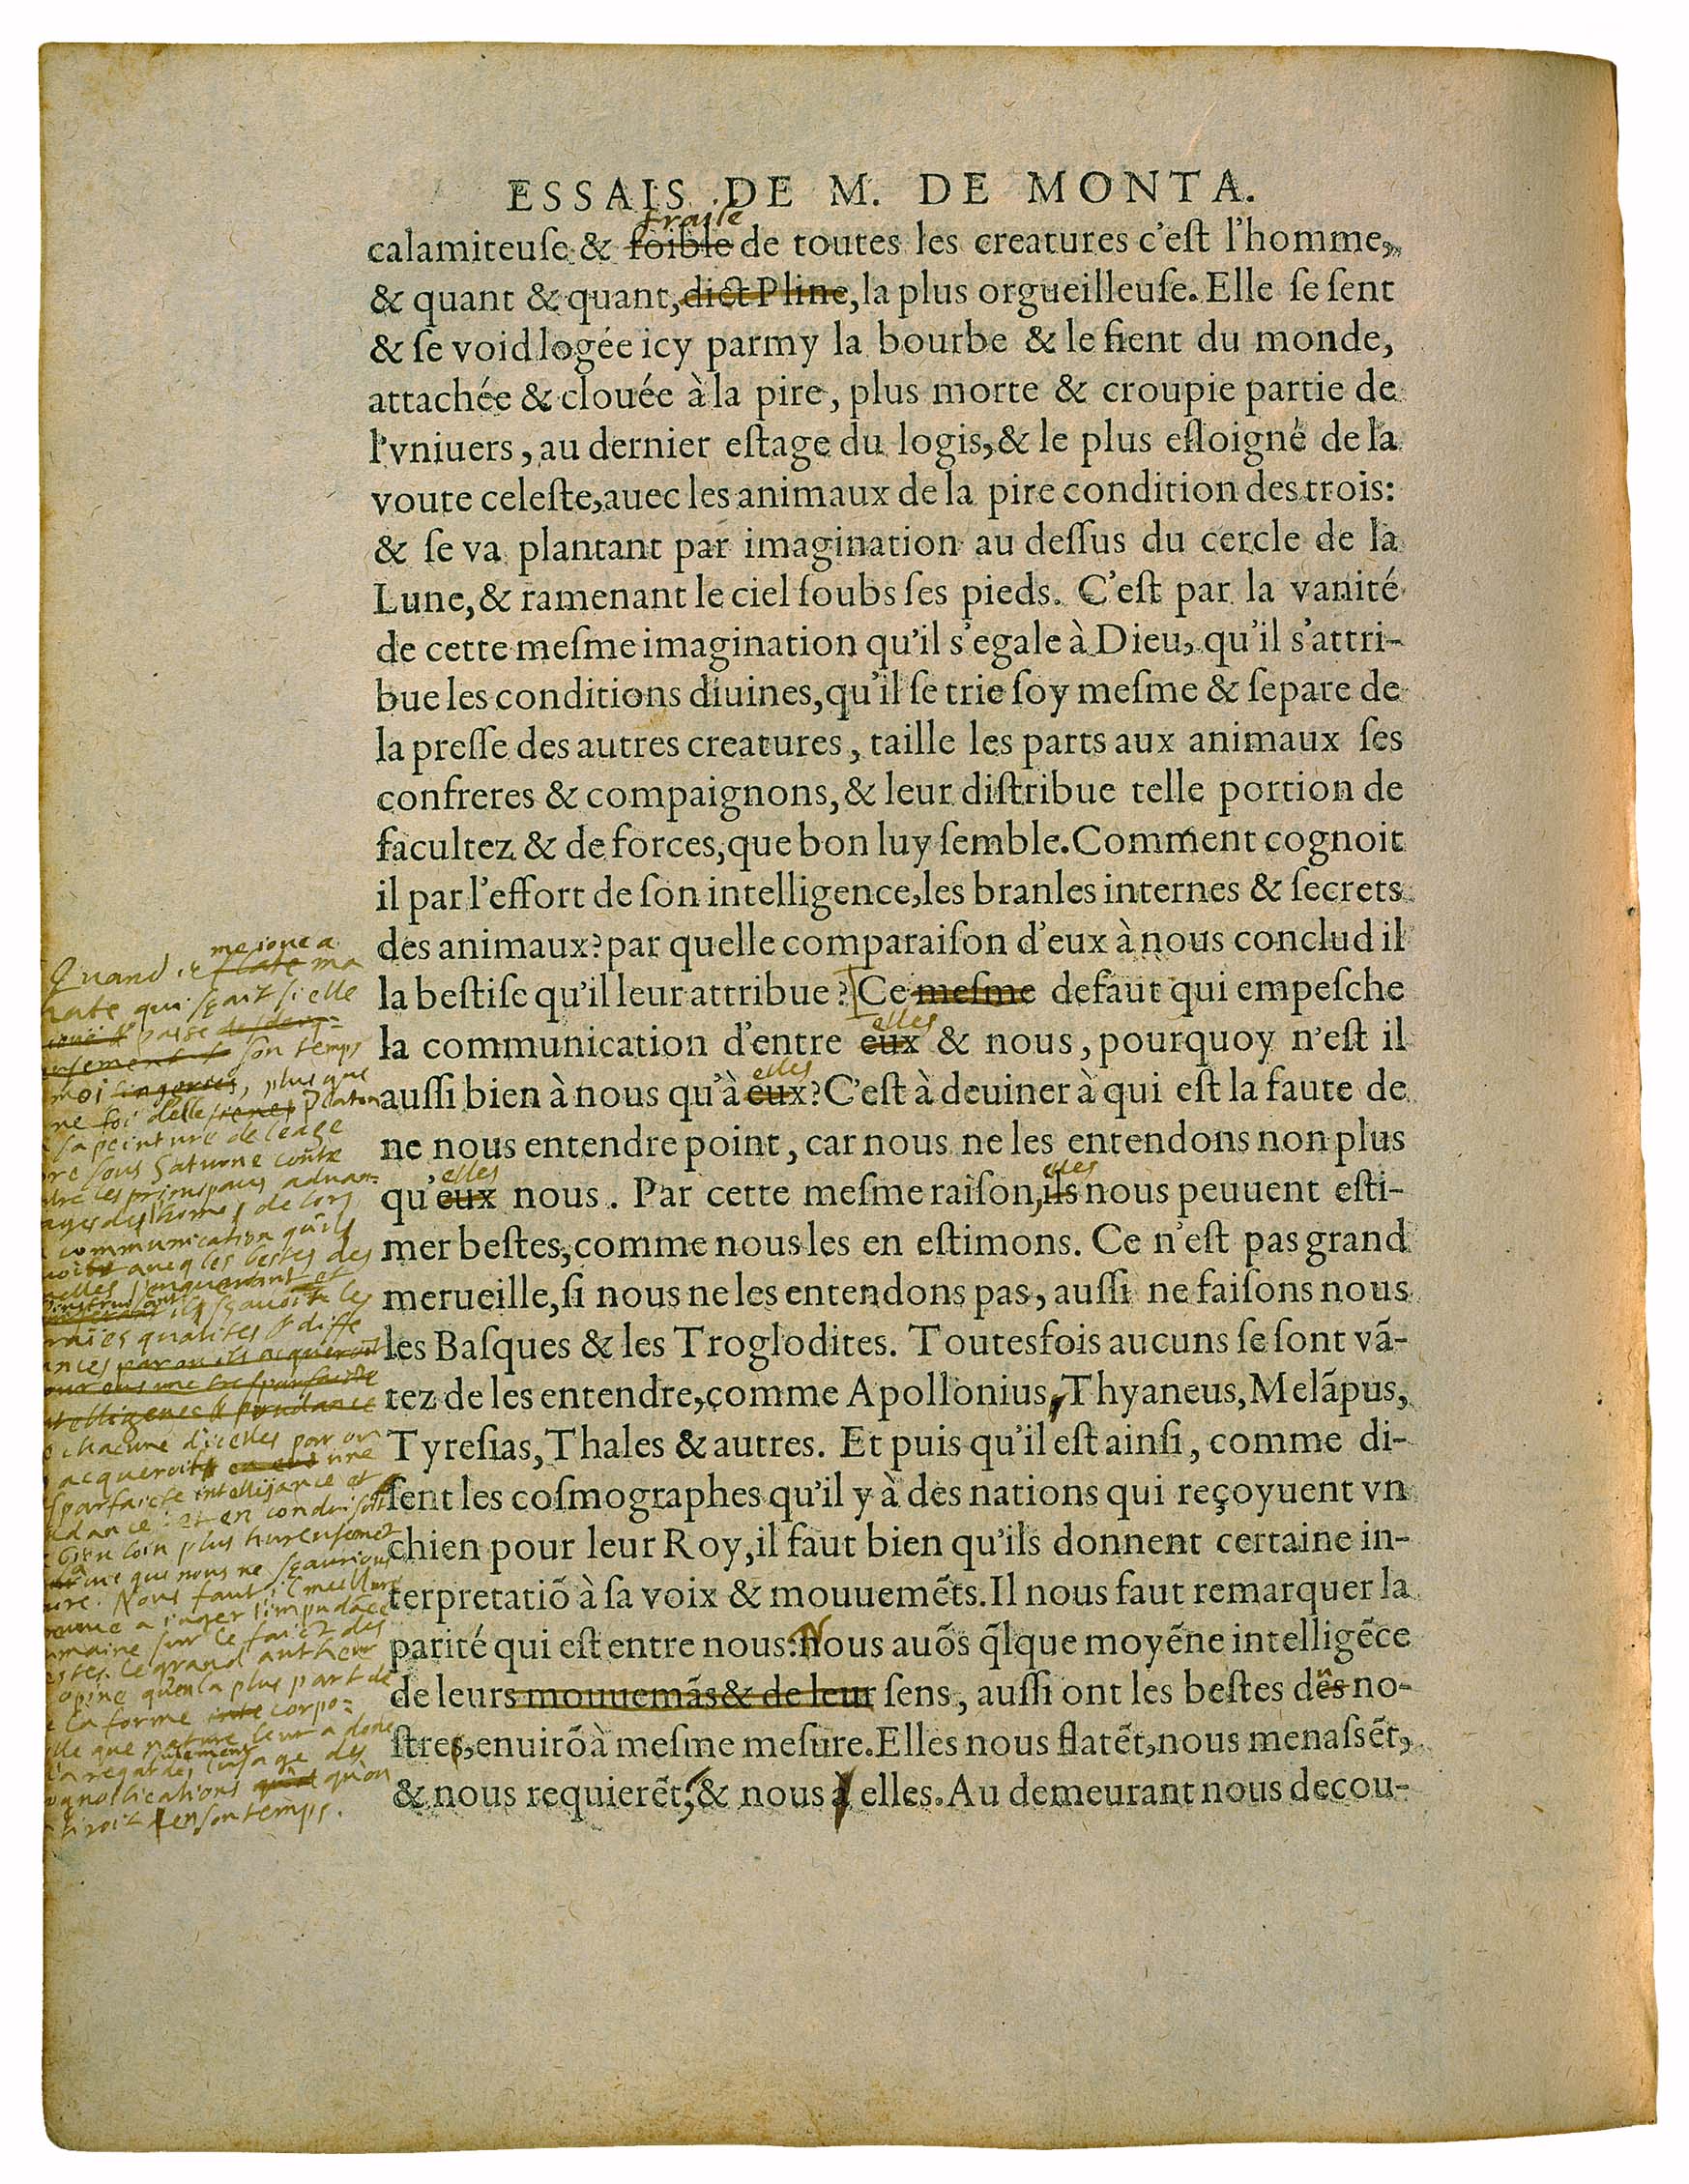 ESSAIS DE M. DE MONTA.
fragile
calamiteuſe & foible de toutes les creatures c'eſt l'homme,
& quant & quant, dict Pline, la plus orgueilleuſe. Elle ſe ſent
& ſe void logée icy parmy la bourbe & le fient du monde,
attachée & clouée à la pire, plus morte & croupie partie de
l'vniuers, au dernier eſtage du logis, & le plus eſloigné de la
voute celeſte, auec les animaux de la pire condition des trois:
& ſe va plantant par imagination au deſſus du cercle de la
Lune, & ramenant le ciel ſoubs ſes pieds. C'eſt par la vanité
de cette meſme imagination qu'il s'egale à Dieu, qu'il s'attri-
bue les conditions diuines, qu'il ſe trie ſoy meſme & ſepare de
la preſſe des autres creatures, taille les parts aux animaux ſes
confreres & compaignons, & leur diſtribue telle portion de
facultez & de forces, que bon luy ſemble. Comment cognoit
il par l'effort de ſon intelligence, les branles internes & ſecrets
des animaux? par quelle comparaiſon d'eux à nous conclud il
la beſtiſe qu'il leur attribue? Ce meſme defaut qui empeſche
elles
la communication d'entre eux & nous, pourquoy n'eſt il
elles
auſſi bien à nous qu'à eux? C'eſt à deuiner à qui eſt la faute de
ne nous entendre point, car nous ne les entendons non plus
elles elles
qu'eux nous. Par cette meſme raiſon, ils nous peuuent eſti-
mer beſtes, comme nous les en eſtimons. Ce n'eſt pas grand
merueille, ſi nous ne les entendons pas, auſſi ne faiſons nous
les Baſques & les Troglodites. Toutesfois aucuns ſe ſont vã-
tez de les entendre, comme Apollonius, Thyaneus, Melãpus,
Tyreſias, Thales & autres. Et puis qu'il eſt ainſi, comme di-
ſent les coſmographes qu'il y à des nations qui reçoyuent vn
chien pour leur Roy, il faut bien qu'ils donnent certaine in-
terpretatiõ à ſa voix & mouuemẽts. Il nous faut remarquer la
parité qui eſt entre nous: Nous auõs q̃lque moyẽne intelligẽce
de leurs mouuemãs & de leur ſens, auſſi ont les beſtes des no-
ſtres, enuirõ à meſme meſure. Elles nous flatẽt, nous menaſsẽt,
& nous requierẽt, & nous à elles. Au demeurant nous decou-
me ioue a
Quand ie flate ma
hate qui sçait si elle
passe
son temps
moi, plus que
delle Platon
sa peinture de leage
sous Saturne contẽ
les principaus aduan-
des homes de lors
communication qu'ils
aueq les bestes des
s'enquerant et
ils sçauoit les
qualites & diffe
chacune d'icelles par ou
acqueroit une
parfaicte intellijance et
: et en conduisoit
bien loin plus hureusemẽt
que nous ne sçaurions
Nous faut il meillure
a iuger l'impudãce
sur le faict des
Ce grand autheur
qu'en la plus part de
la forme corpo-
que nature leur a doné
regarde l'usage des
qu'on
en son temps.